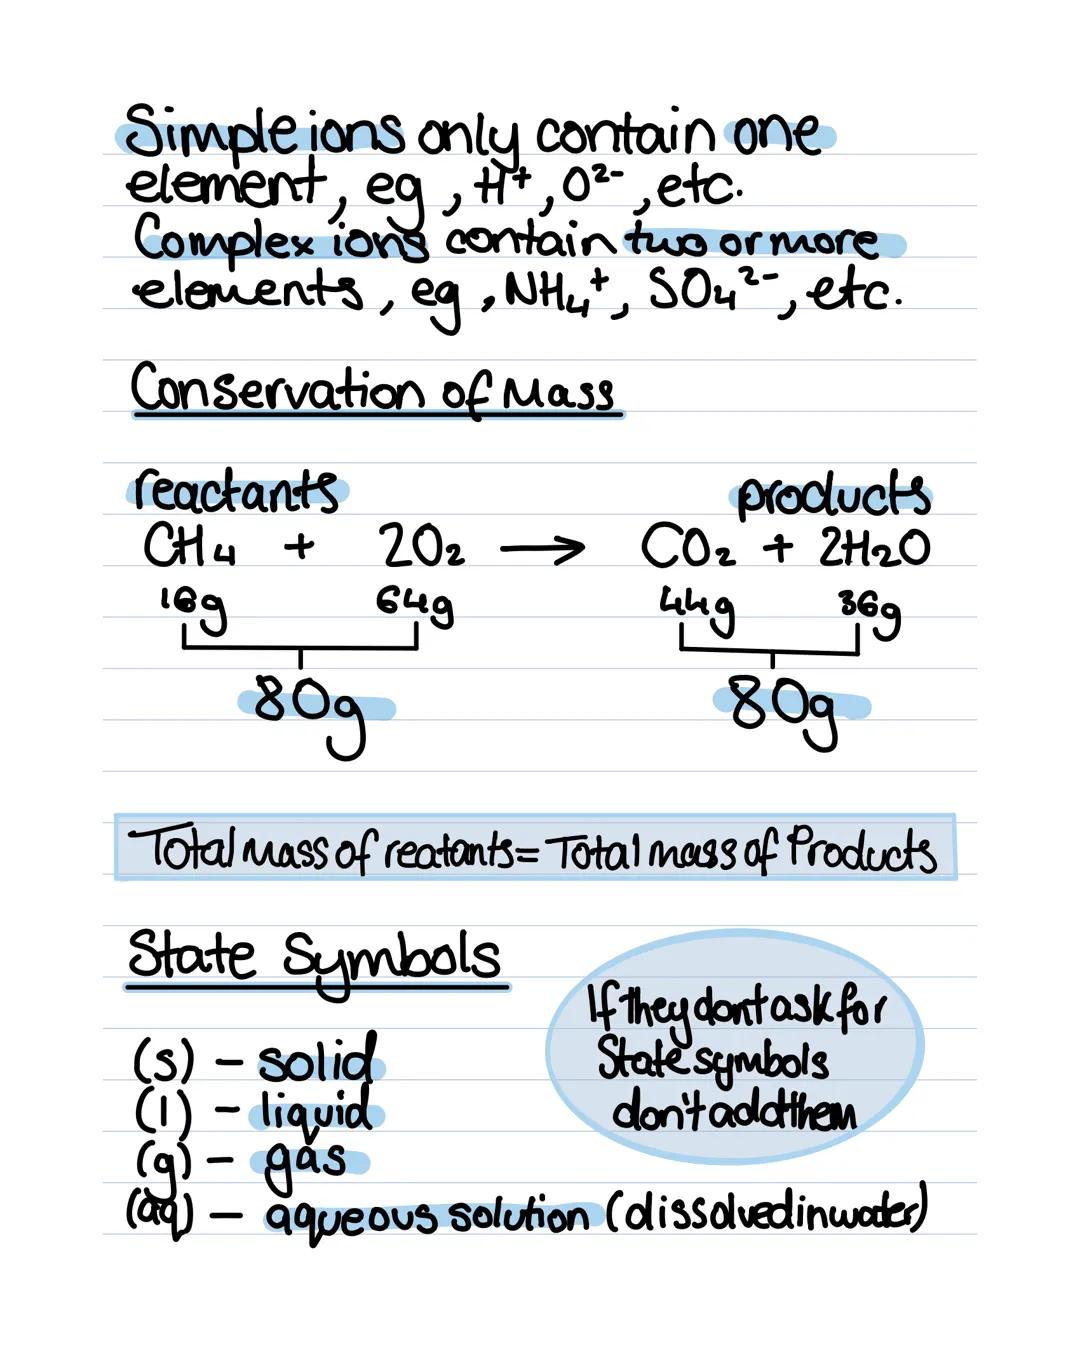 Simple ions only contain one
element, eg, H⁺, O²⁻, etc.
Complex ions contain two or more
elements, eg, NH₄⁺, SO₄²⁻, etc.
Conservation of Mass
reactants products
CH₄ + 2O₂ → CO₂ + 2H₂O
16g 64g 44g 36g
80g 80g
Total mass of reatants = Total mass of Products
State Symbols
If they dont ask for
State symbols
don't add them
(s) - solid
(l) - liquid
(g) - gas
(aq) - aqueous solution (dissolved in water)